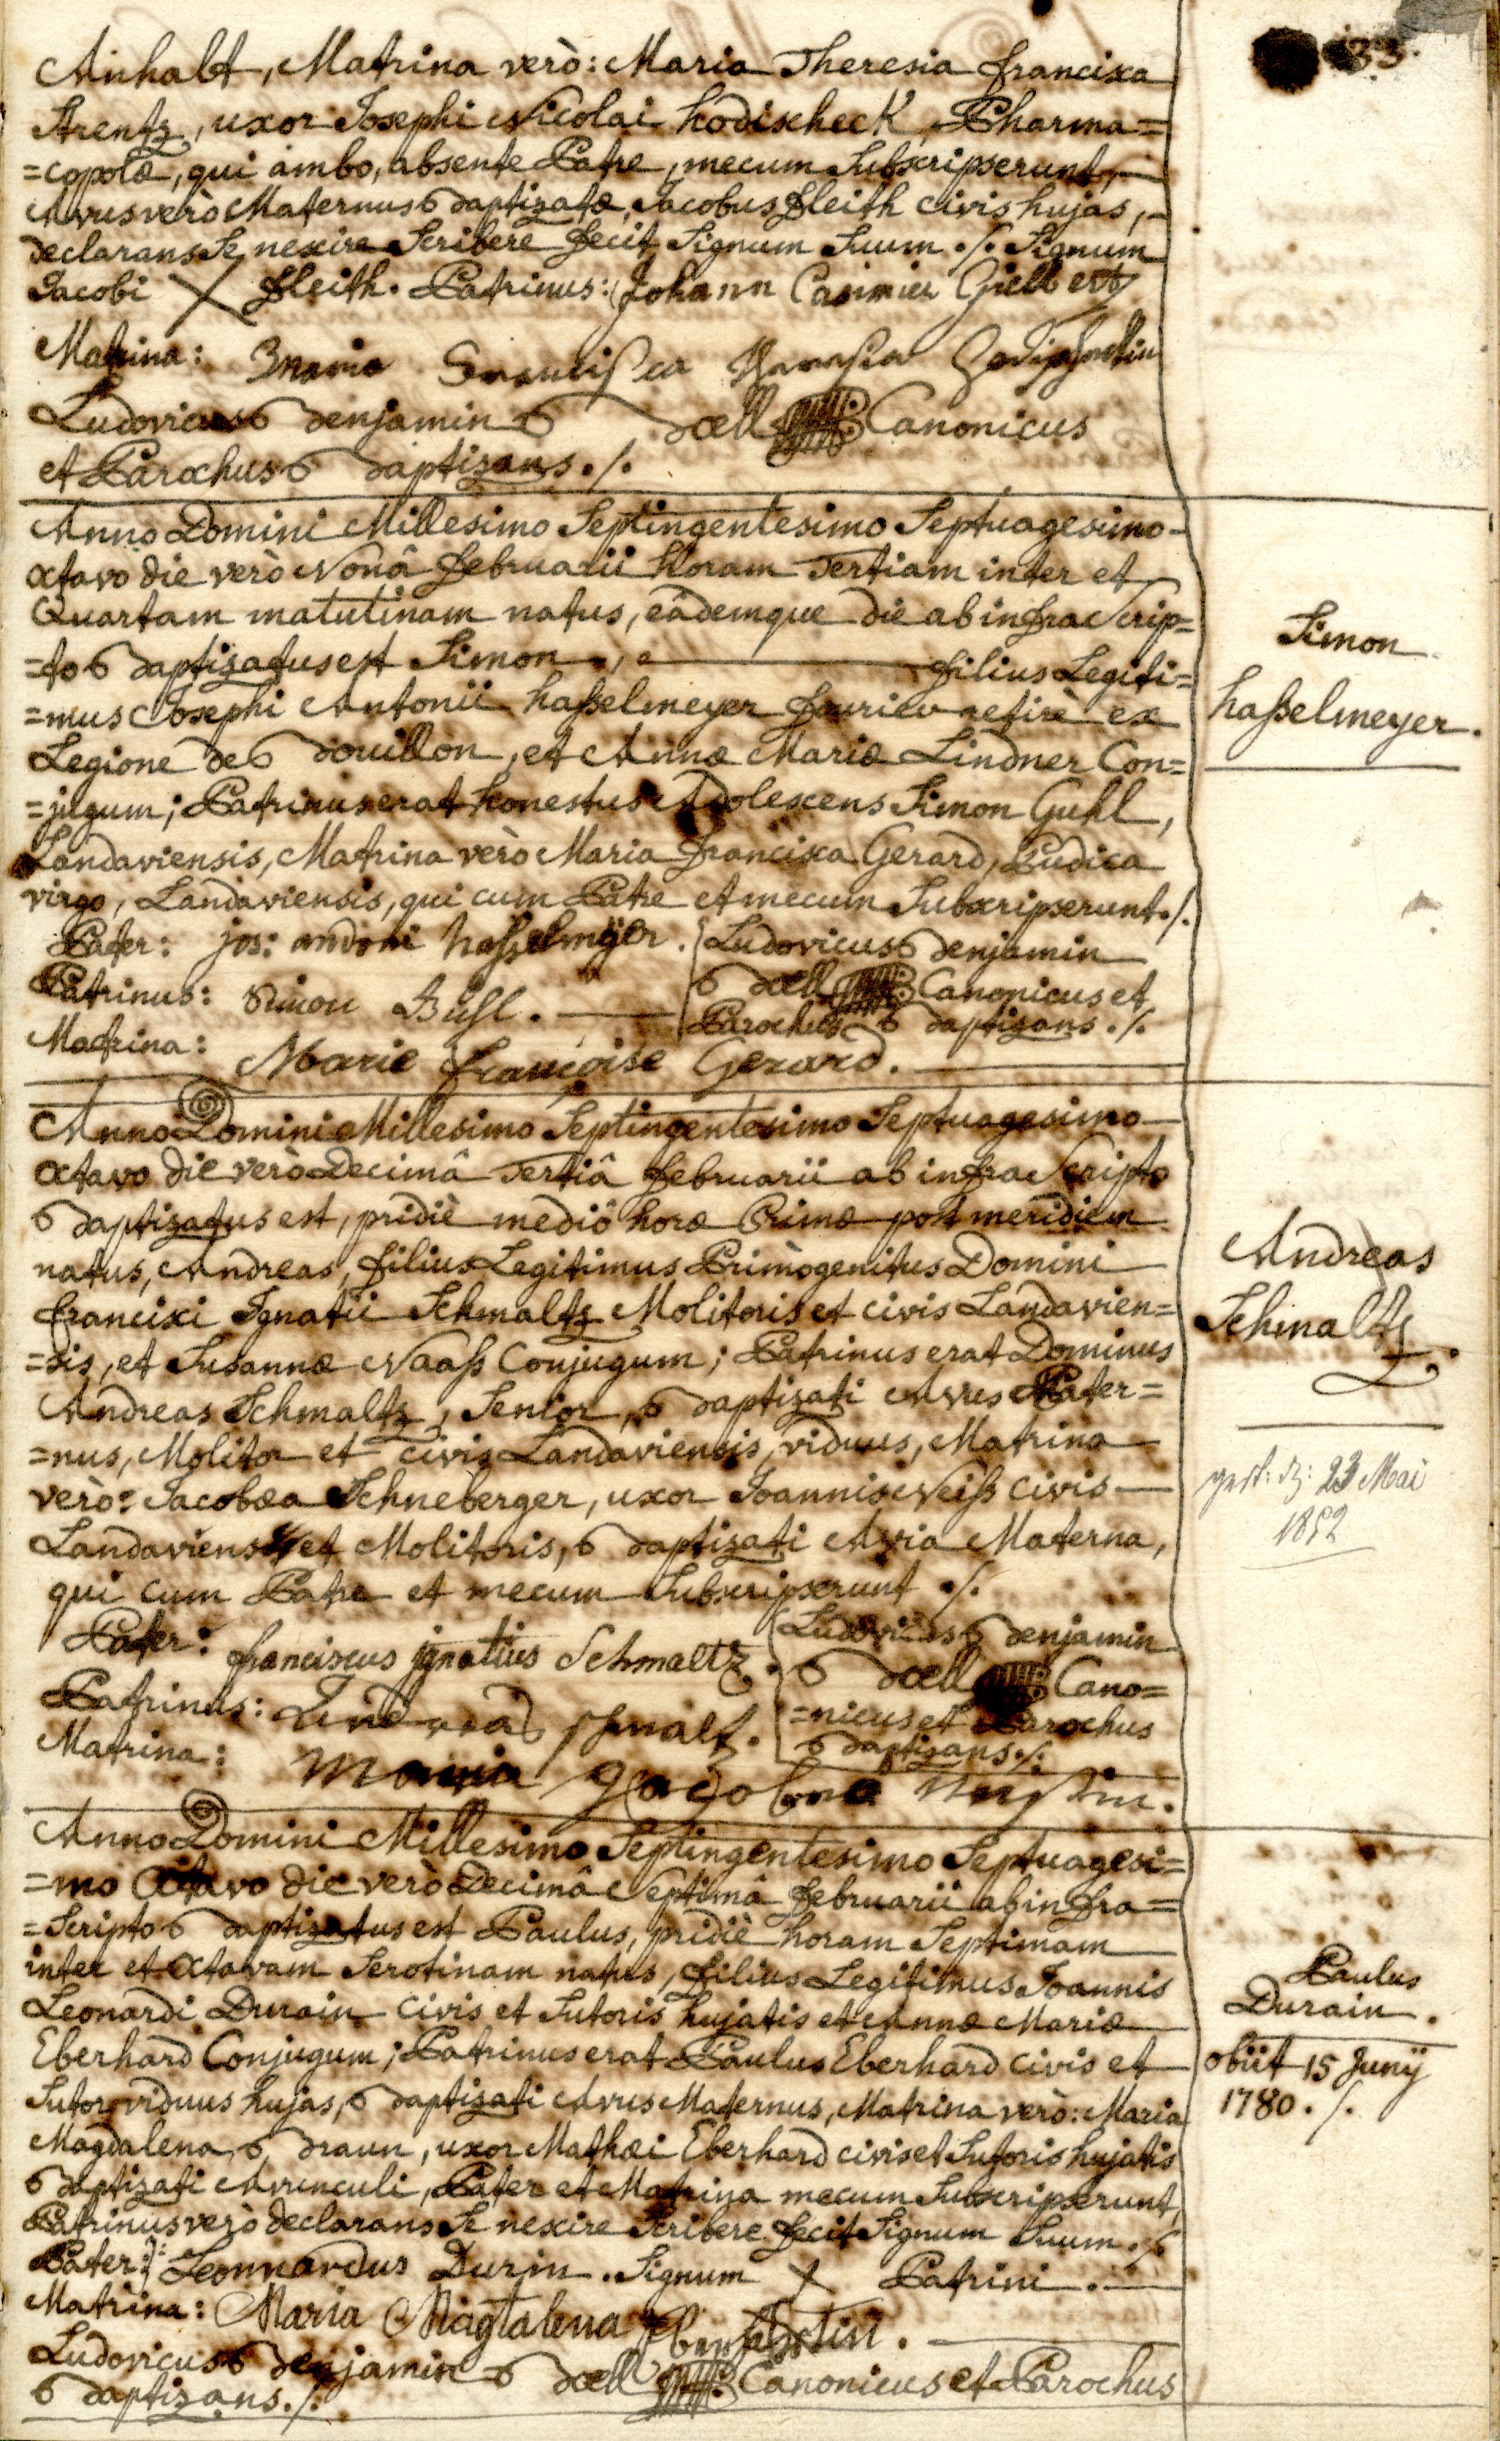 33.
Anhalt, Matrina verò: Maria Theresia Francisca
Arentz, uxor Josephi Nicolai Hodischeck, Pharma=
=copolæ, qui ambo, absente Patre, mecum Subscripserunt,
Avus verò Maternus Baptizatæ, Jacobus Fleith civis hujas,
declarans Se nescire Scribere fecit Signum Suum ./. Signum
Jacobi X Fleith. Patrinus: Johann Casimier Giellert
Matrina: Maria Francisca
Ludovicus Benjamin Bœll Canonicus
et Parochus Baptizans ./.
Anno Domini Millesimo Septingentesimo Septuagesimo
octavo die verò Nonâ Februarii horam Tertiam inter et
Quartam matutinam natus, eâdemque die ab infra Scrip=
=to Baptizatus est Simon, filius Legiti=
=mus Josephi Antonii Haßelmeyer fourier retirè ex
Legione de Bouillon, et Annæ Mariæ Lindner Con=
=jugum; Patrinus erat honestus Adolescens Simon Guhl,
Landaviensis, Matrina verò Maria Francisca Gerard, Pudica
virgo, Landaviensis, qui cum Patre et mecum Subscripserunt ./.
Pater: jos: andoni haßelmÿer.
Patrinus: Simon Guhl.
Matrina: Marie françoise Gerard.
Ludovicus Benjamin
Bœll Canonicus et
Parochus Baptizans ./.
Simon
Haßelmeyer.
Anno Domini Millesimo Septingentesimo Septuagesimo
octavo die verò Decimâ Tertiâ Februarii ab infra Scripto
Baptizatus est, pridiè mediô horæ Primæ post meridiem
natus, Andreas, filius Legitimus Primògenitus Domini
Francisci Ignatii Schmaltz Molitoris et civis Landavien=
=sis, et Susannæ Naaß Conjugum; Patrinus erat Dominus
Andreas Schmaltz, Senior, Baptizati Avus Pater=
=nus, Molitor et civis Landaviensis, viduus, Matrina
verò: Jacobæa Schneberger, uxor Joannis Weiß civis
Landaviensis et Molitoris, Baptizati Avia Materna,
qui cum Patre et mecum Subscripserunt ./.
Pater: franciscus jgnatius Schmaltz.
Patrinus: Andreas schmaltz.
Matrina: Maria
Ludovicus Benjamin
Bœll Cano=
=nicus et Parochus
Baptizans ./.
Andreas
Schmaltz.
gest: d: 23 Mai
1852
Anno Domini Millesimo Septingentesimo Septuagesi=
=mo Octavo die verò Decimâ Septimâ Februarii ab infra=
=Scripto Baptizatus est Paulus, pridiè horam Septimam
inter et Octavam Serotinam natus, filius Legitimus Joannis
Leonardi Durain civis et Sutoris hujatis et Annæ Mariæ
Eberhard Conjugum; Patrinus erat Paulus Eberhard civis et
Sutor viduus hujas, Baptizati Avus Maternus, Matrina verò: Maria
Magdalena Braun, uxor Mathæi Eberhard civis et Sutoris hujatis
Baptizati Avunculi, Pater et Matrina mecum Subscripserunt,
Patrinus verò declarans Se nescire Scribere fecit Signum Suum ./.
Pater: Leonnardus Durin. Signum X Patrini.
Matrina: Maria Magtalena Eberhartin.
Ludovicus Benjamin Bœll Canonicus et Parochus
Baptizans ./.
Paulus
Durain.
obiit 15 Junÿ
1780 ./.